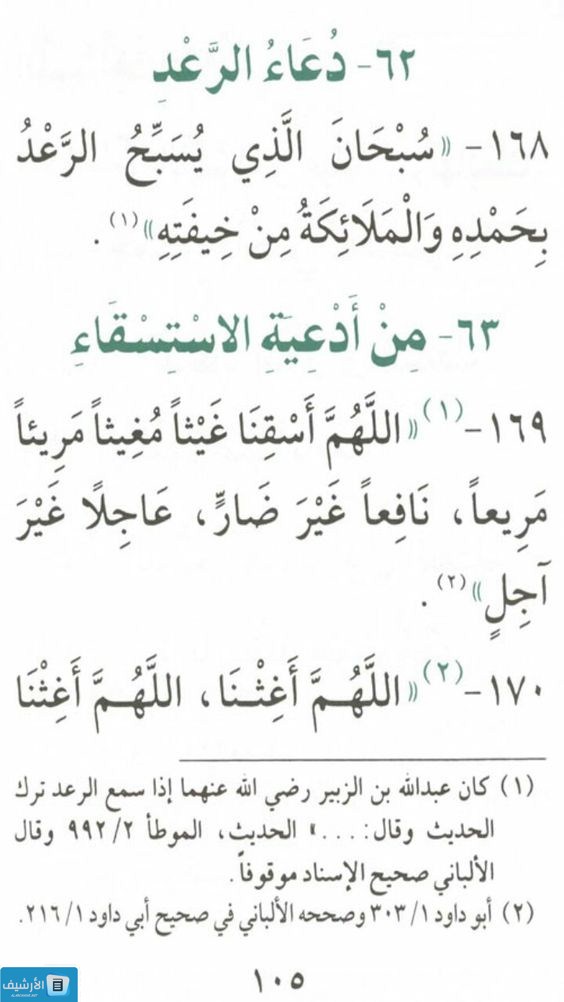 ٦٢- دُعَاءُ الرَّعْدِ
١٦٨- «سُبْحَانَ الَّذِي يُسَبِّحُ الرَّعْدُ
بِحَمْدِهِ وَالْمَلَائِكَةُ مِنْ خِيفَتِهِ»(١).
٦٣- مِنْ أَدْعِيَةِ الاسْتِسْقَاءِ
١٦٩-(١) «اللَّهُمَّ أَسْقِنَا غَيْثاً مُغِيثاً مَرِيئاً
مَرِيعاً، نَافِعاً غَيْرَ ضَارٍّ، عَاجِلًا غَيْرَ
آجِلٍ»(٢).
١٧٠-(٢) «اللَّهُمَّ أَغِثْنَا، اللَّهُمَّ أَغِثْنَا
(١) كان عبدالله بن الزبير رضي الله عنهما إذا سمع الرعد ترك
الحديث وقال: ...» الحديث، الموطأ ٢/ ٩٩٢ وقال
الألباني صحيح الإسناد موقوفاً.
(٢) أبو داود ١/ ٣٠٣ وصححه الألباني في صحيح أبي داود ١/ ٢١٦.
١٠٥
الأرشيف